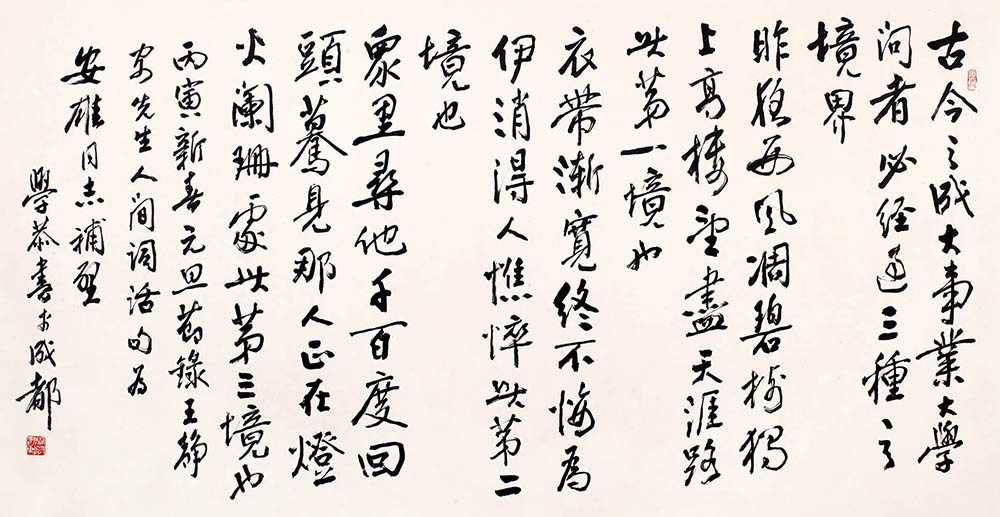 古今之成大事業大學
问者必经过三種之
境界
昨夜西风凋碧树独
上高楼望盡天涯路
此第一境也
衣带渐寬终不悔为
伊消得人憔悴此第二
境也
眾里尋他千百度回
頭蓦見那人正在燈
火阑珊處此第三境也
丙寅新春元旦節錄王静
安先生人间词话句为
安雄同志補壁
學恭書於成都